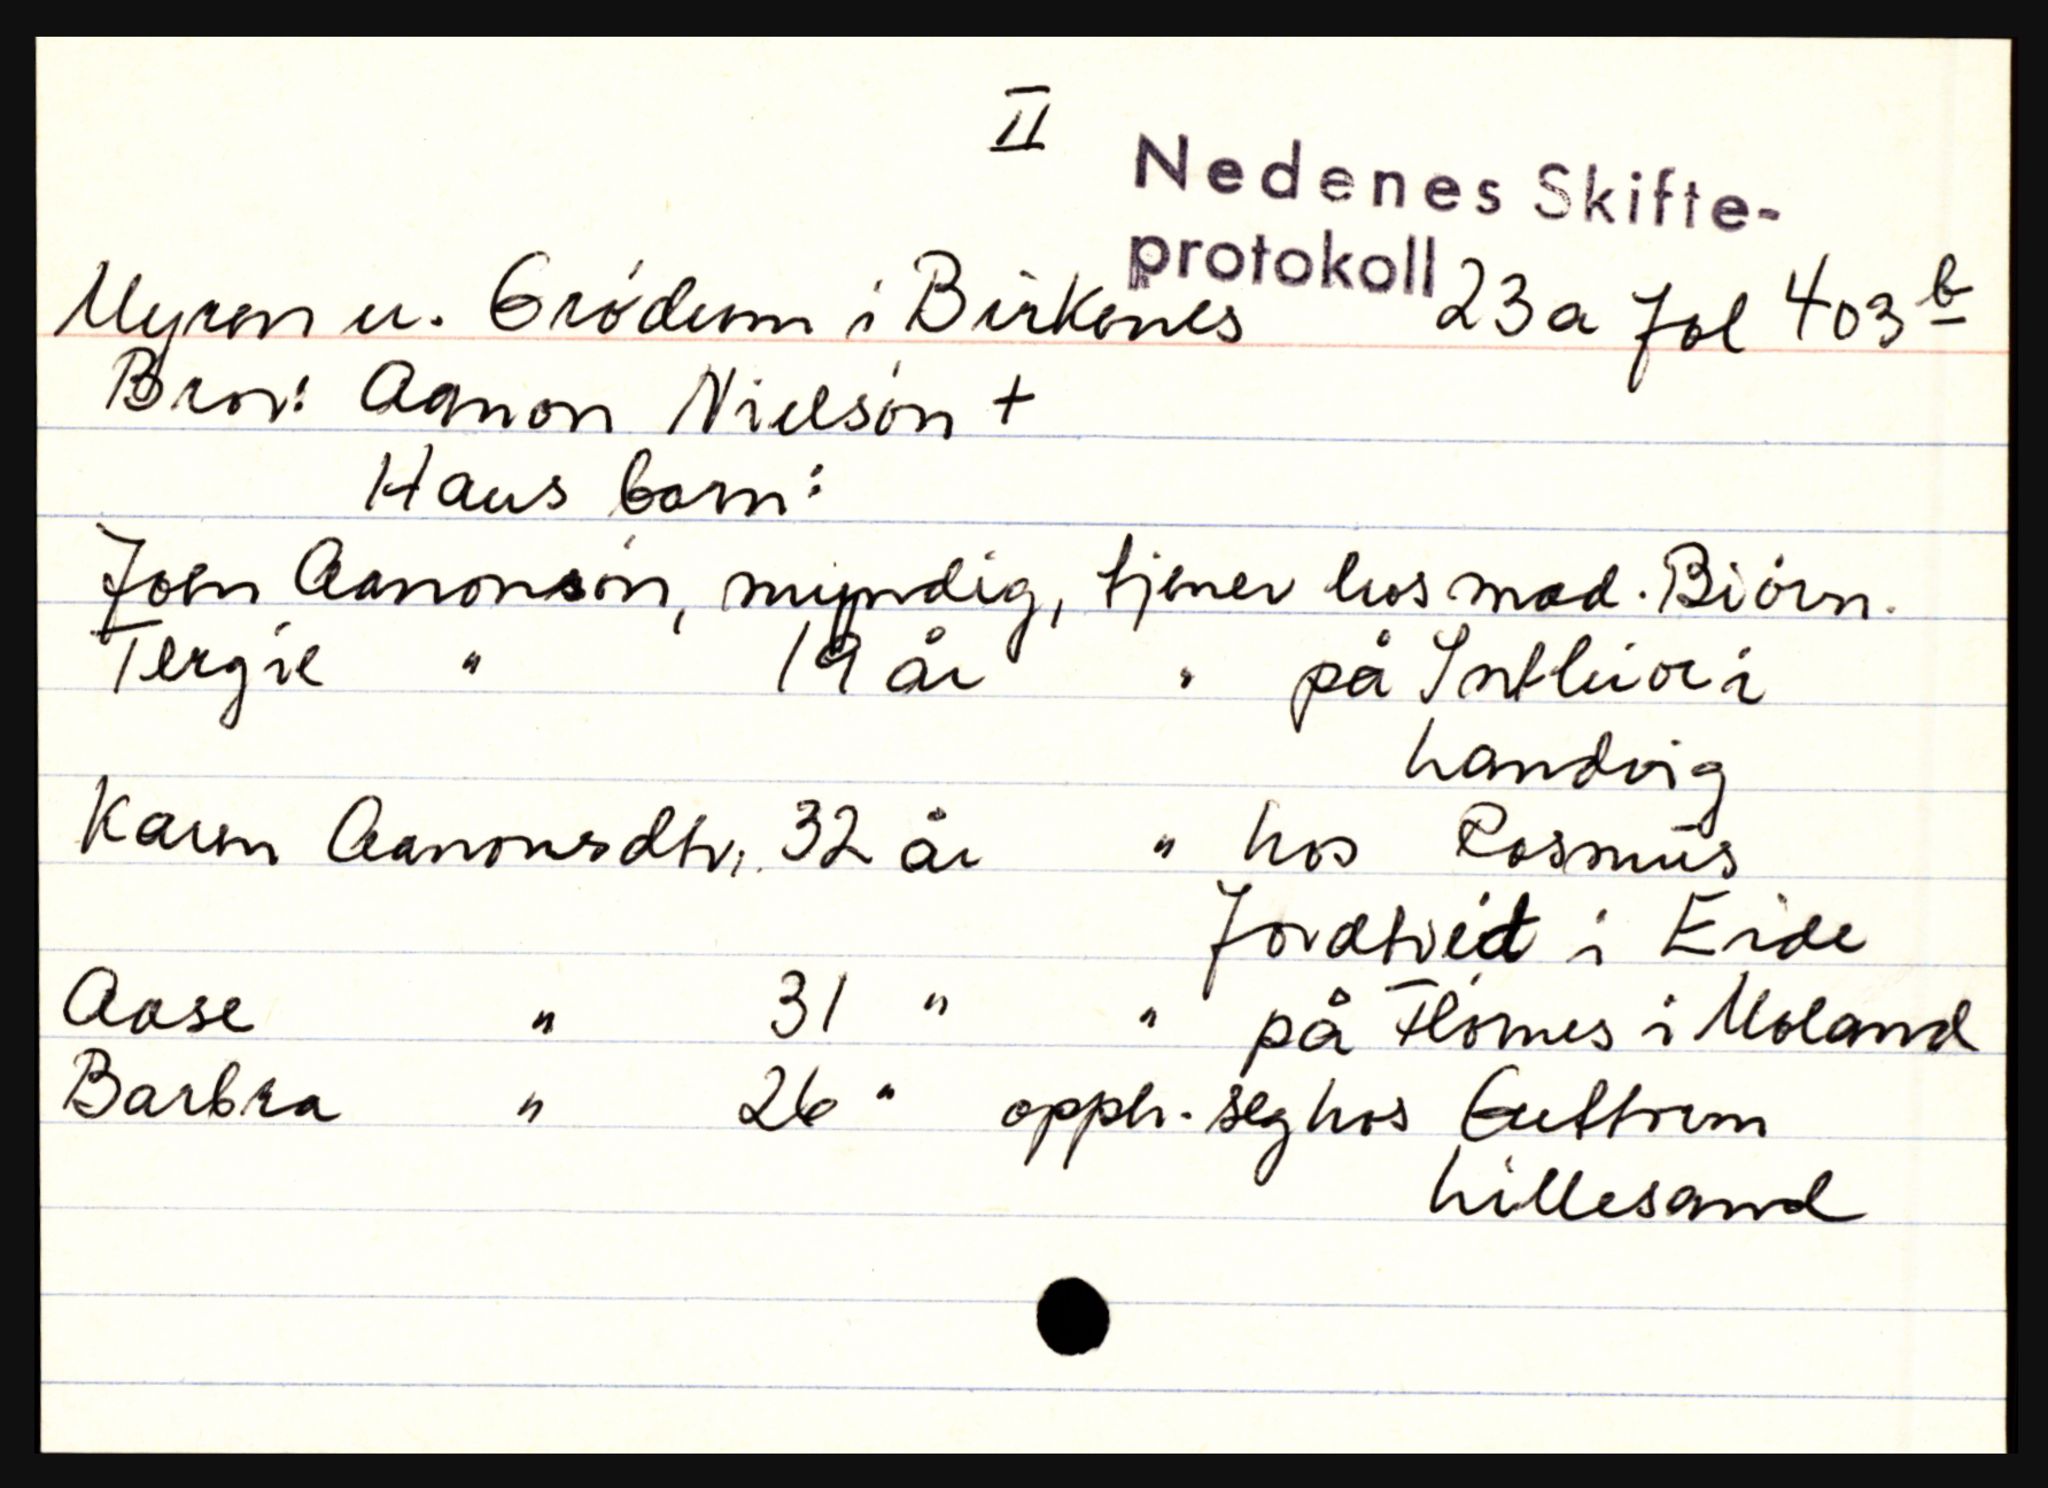 II
Nedenes Skifte-
protokoll
Myren u. Grødum i Birkenes 23a Fol 403 b
Bror: Aanon Nielsøn +
Hans born:
Joen Aanonsøn, myndig, tjener hos mad. Biørn.
Tergie " 19 år " på Inthior i
Landvig
Karen Aanonsdtr. 32 år " hos Rasmus
Jordtvedt i Eide
Aase " 31 " " på Flørnes i Moland
Barbra " 26 " opph. seg hos Guttorm
Lillesand